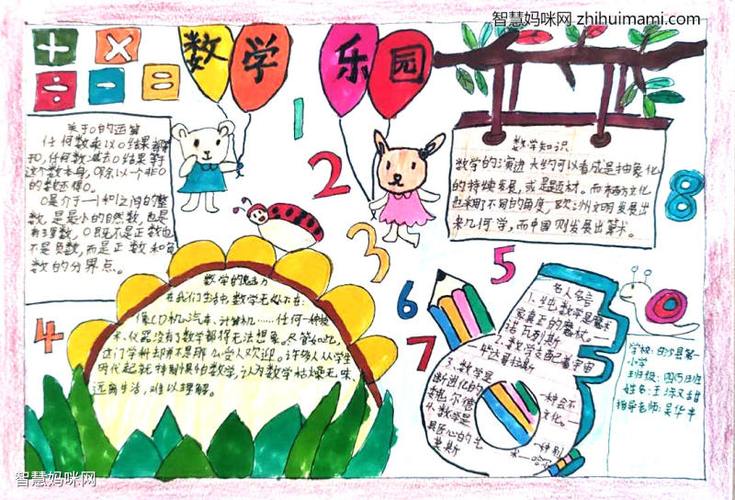 智慧妈咪网 zhihuimami.com
+ × ÷ - =
数学乐园
关于0的运算
任何数乘以0结果都得
和,任何数减去0结果等于
这个数本身,0除以一个非0
的数还得0。
0是介于-1和1之间的整
数,是最小的自然数,也是
有理数,0既不是正数也
不是负数,而是正数和负
数的分界点。
数学知识
数学的演进大约可以看成是抽象化
的持续发展,或是题材。而东西方文化
也采用了不同的角度,欧洲文明发展出
来几何学,而中国则发展出算术。
1
2
3
4
5
6
7
8
数学的魅力
在我们生活中,数学无处不在:
像CD机、汽车、计算机……任何一种技
术、仪器没有了数学都将无法想象。尽管如此,
这门学科却并不是那么受人欢迎。许多人从学生
时代起就特别惧怕数学,认为数学枯燥无味、
远离生活,难以理解。
名人名言
1、
家真正的素材。
2、数学支配着宇宙
毕达哥拉斯
3、数学是一种会不
断进化的文化。
魏尔德
4、数学是一种别
具匠心的艺
莫斯
学校:
小学
班级:四(5)班
姓名:王
指导老师:吴华丰
智慧妈咪网